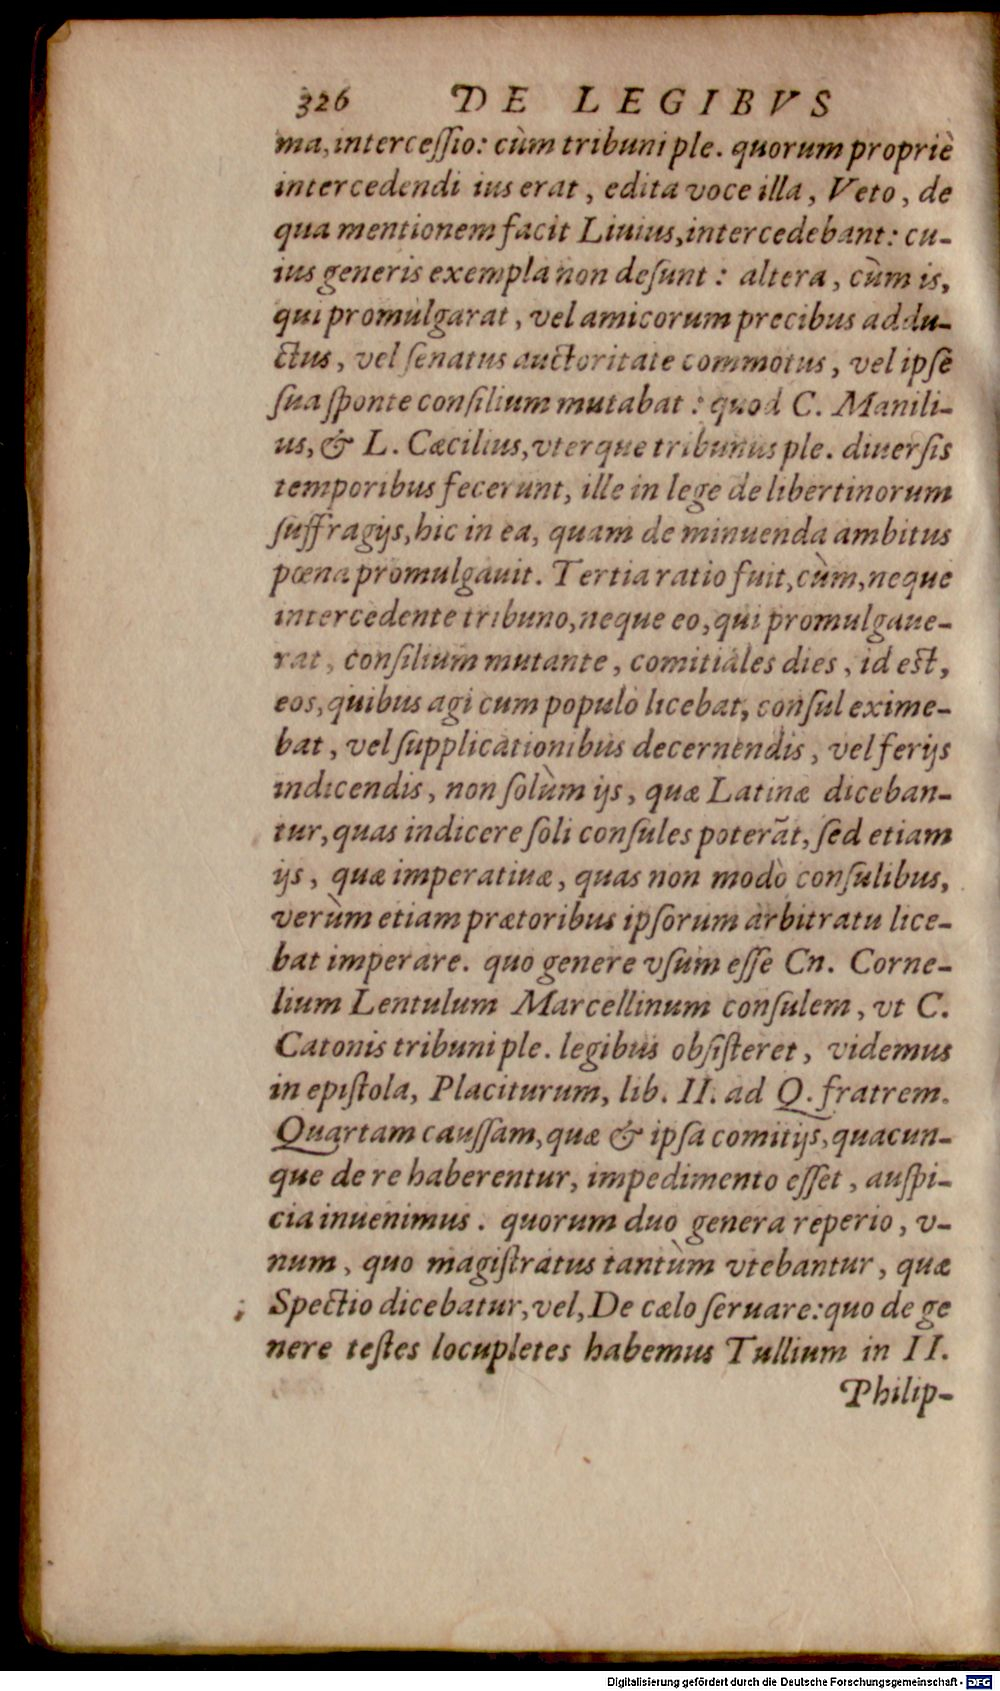 326 DE LEGIBVS
ma, intercessio: cùm tribuni ple. quorum propriè
intercedendi ius erat, edita voce illa, Veto, de
qua mentionem facit Liuius, intercedebant: cu-
ius generis exempla non desunt: altera, cùm is,
qui promulgarat, vel amicorum precibus addu-
ctus, vel senatus auctoritate commotus, vel ipse
sua sponte consilium mutabat: quod C. Manili-
us, & L. Cæcilius, vterque tribunus ple. diuersis
temporibus fecerunt, ille in lege de libertinorum
suffragijs, hic in ea, quam de minuenda ambitus
pœna promulgauit. Tertia ratio fuit, cùm, neque
intercedente tribuno, neque eo, qui promulgaue-
rat, consilium mutante, comitiales dies, id est,
eos, quibus agi cum populo licebat, consul exime-
bat, vel supplicationibus decernendis, vel ferijs
indicendis, non solùm ijs, quæ Latinæ diceban-
tur, quas indicere soli consules poterãt, sed etiam
ijs, quæ imperatiuæ, quas non modò consulibus,
verùm etiam prætoribus ipsorum arbitratu lice-
bat imperare. quo genere vsum esse Cn. Corne-
lium Lentulum Marcellinum consulem, vt C.
Catonis tribuni ple. legibus obsisteret, videmus
in epistola, Placiturum, lib. II. ad Q. fratrem.
Quartam caussam, quæ & ipsa comitijs, quacun-
que de re haberentur, impedimento esset, auspi-
cia inuenimus. quorum duo genera reperio, v-
num, quo magistratus tantùm vtebantur, quæ
Spectio dicebatur, vel, De cælo seruare: quo de ge
nere testes locupletes habemus Tullium in II.
Philip-
Digitalisierung gefördert durch die Deutsche Forschungsgemeinschaft - DFG